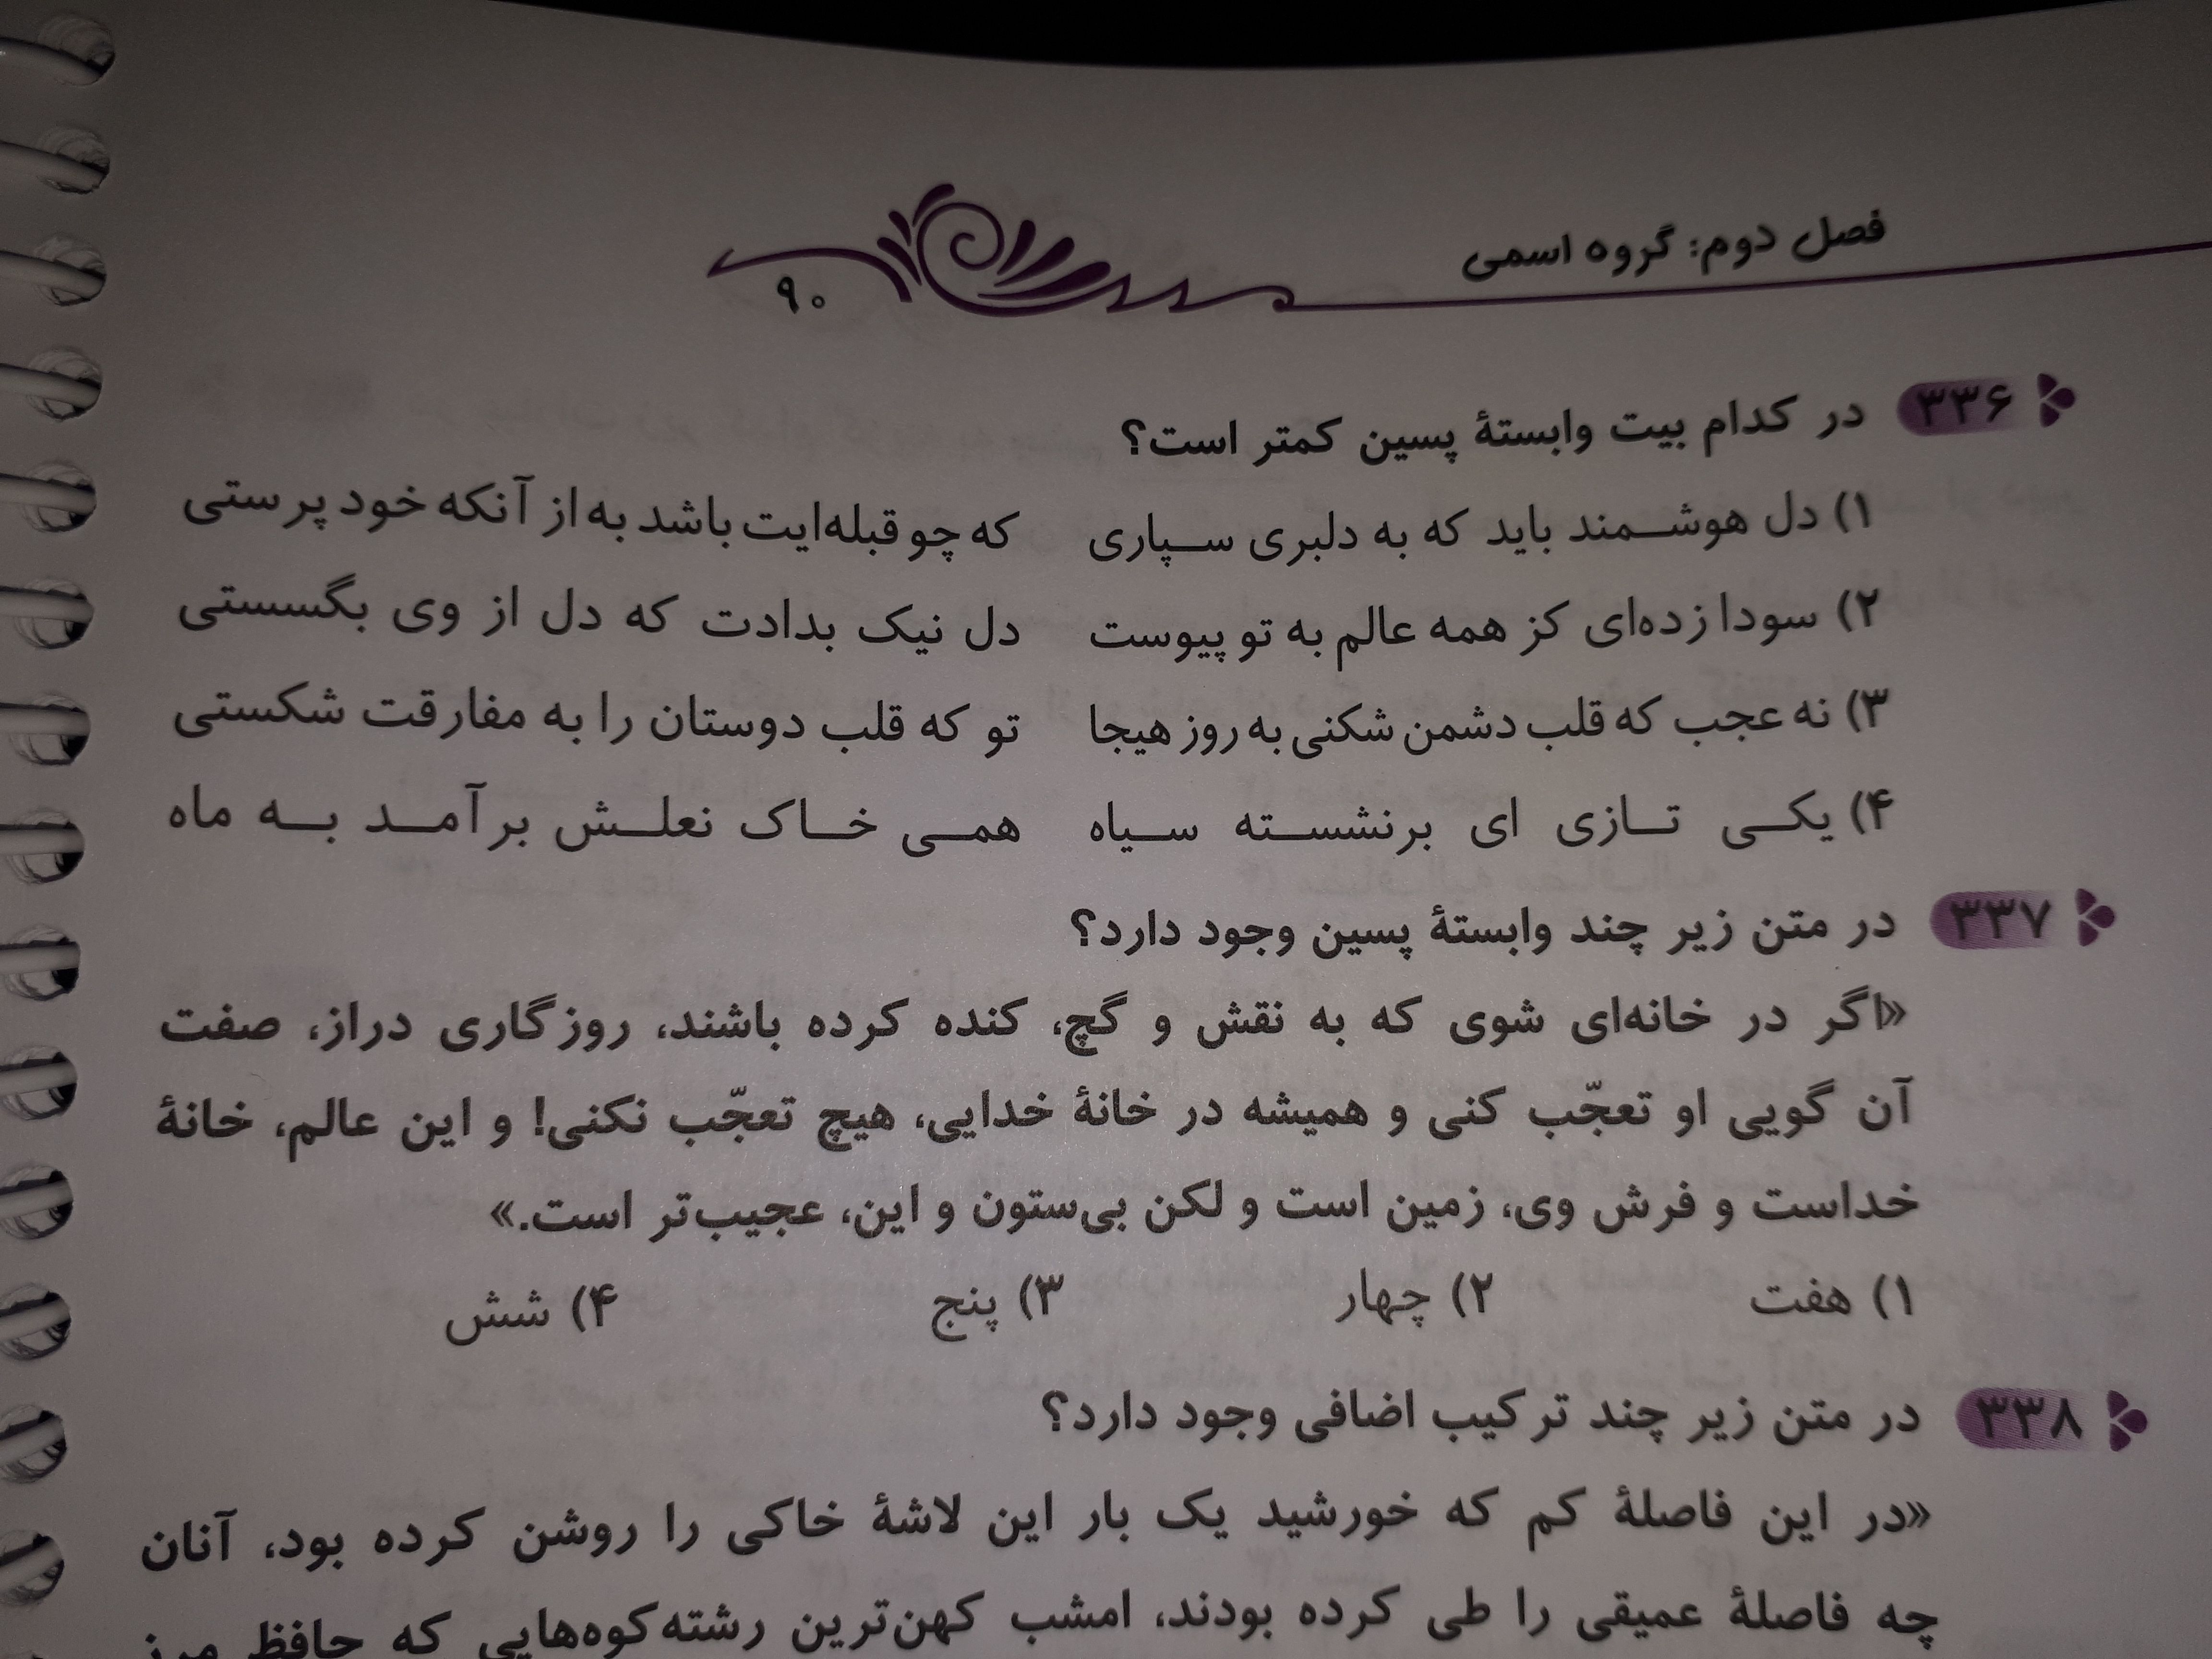 فصل دوم: گروه اسمی
۹۰
۳۳۶ در کدام بیت وابستهٔ پسین کمتر است؟
۱) دل هوشـمند باید که به دلبری سـپاری که چو قبله‌ایت باشد به از آنکه خود پرستی
۲) سودا زده‌ای کز همه عالم به تو پیوست دل نیک بدادت که دل از وی بگسستی
۳) نه عجب که قلب دشمن شکنی به روز هیجا تو که قلب دوستان را به مفارقت شکستی
۴) یکـی تـازی ای برنشسـته سـیاه همـی خـاک نعلـش برآمـد بـه ماه
۳۳۷ در متن زیر چند وابستهٔ پسین وجود دارد؟
«اگر در خانه‌ای شوی که به نقش و گچ، کنده کرده باشند، روزگاری دراز، صفت
آن گویی او تعجّب کنی و همیشه در خانهٔ خدایی، هیچ تعجّب نکنی! و این عالم، خانهٔ
خداست و فرش وی، زمین است و لکن بی‌ستون و این، عجیب‌تر است.»
۱) هفت ۲) چهار ۳) پنج ۴) شش
۳۳۸ در متن زیر چند ترکیب اضافی وجود دارد؟
«در این فاصلهٔ کم که خورشید یک بار این لاشهٔ خاکی را روشن کرده بود، آنان
چه فاصلهٔ عمیقی را طی کرده بودند، امشب کهن‌ترین رشته‌کوه‌هایی که حافظ مرز